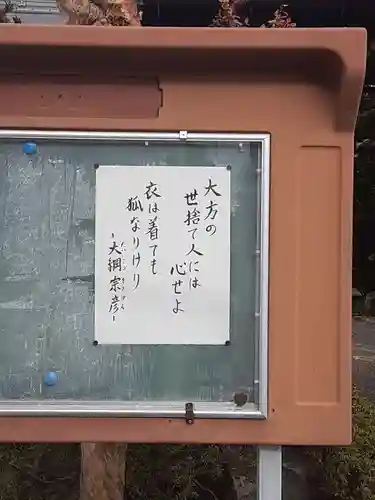 大方の
世捨て人には
心せよ
衣は着ても
狐なりけり
-大綱宗彦-